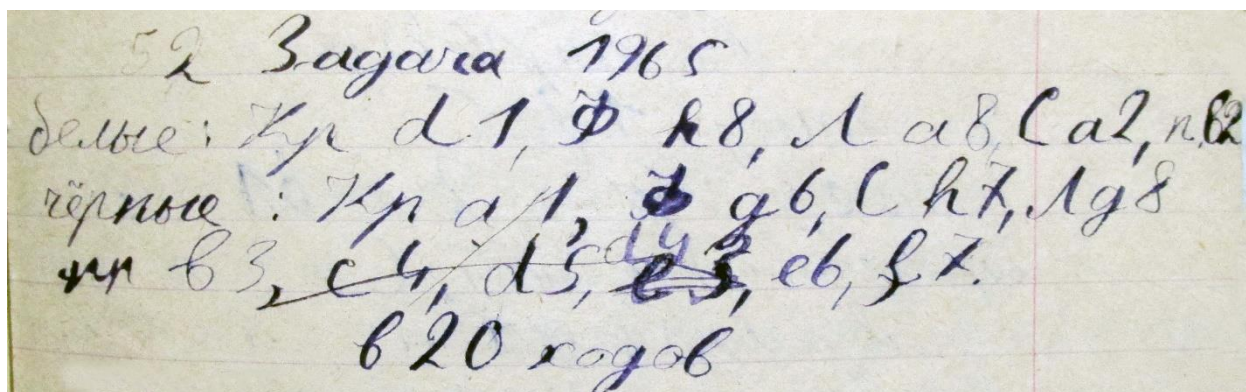 52 Задача 1965
белые: Кр d1, Ф h8, Л a8, С a2, п. в2
чёрные: Кр a1, Ф g6, С h7, Л g8
пп в3, c4, d5, e6, f7.
в 20 ходов